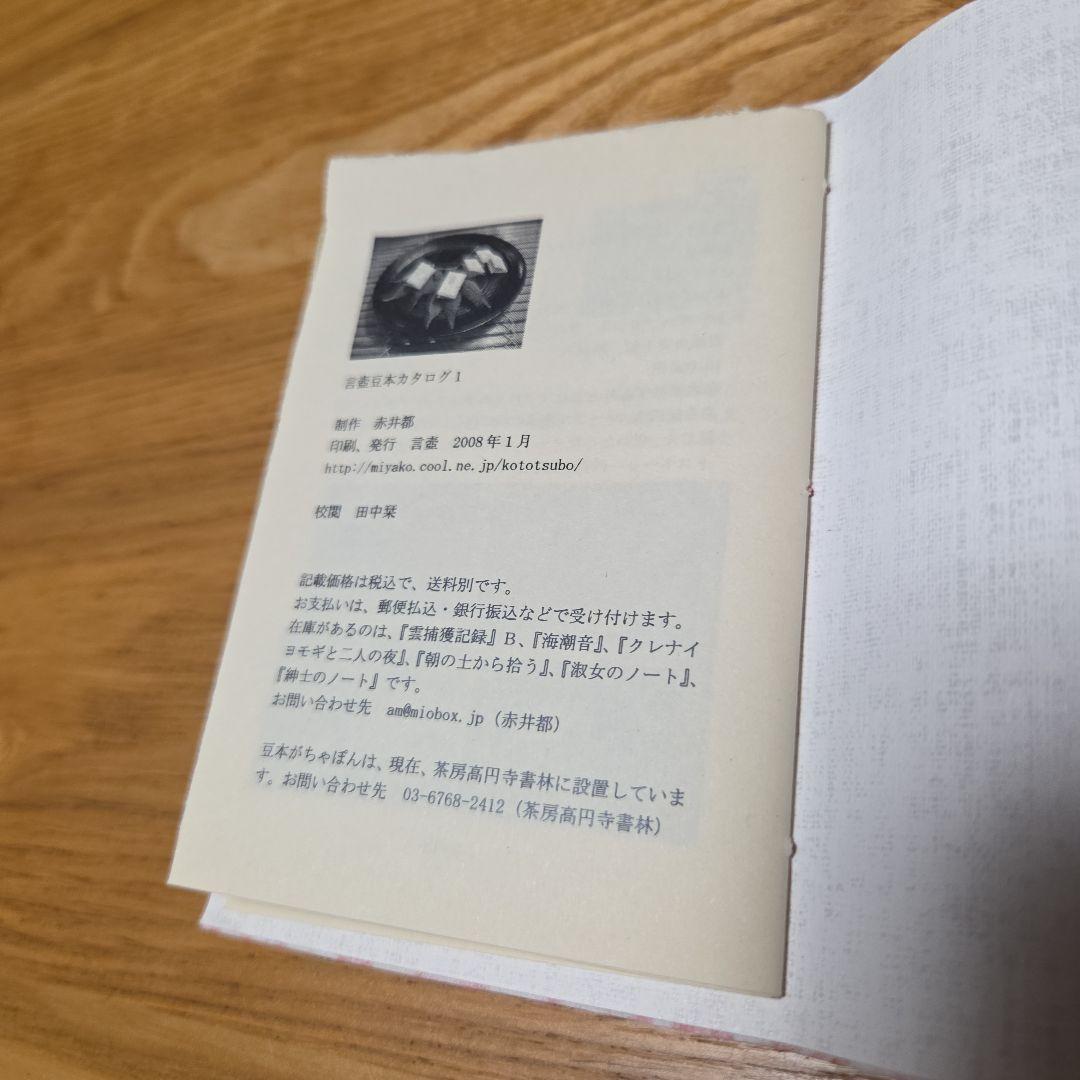 言壺豆本カタログ1
制作　赤井都
印刷、発行　言壺　2008年1月
http://miyako.cool.ne.jp/kototsubo/
校閲　田中栞
記載価格は税込で、送料別です。
お支払いは、郵便払込・銀行振込などで受け付けます。
在庫があるのは、『雲捕獲記録』B、『海潮音』、『クレナイ
ヨモギと二人の夜』、『朝の土から拾う』、『淑女のノート』、
『紳士のノート』です。
お問い合わせ先　am@miobox.jp（赤井都）
豆本がちゃぽんは、現在、茶房高円寺書林に設置していま
す。お問い合わせ先　03-6768-2412（茶房高円寺書林）